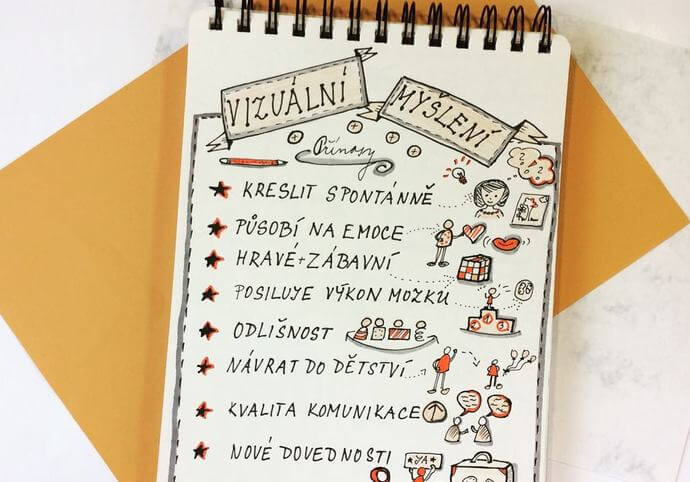 VIZUÁLNÍ
MYŠLENÍ
Přínosy
KRESLIT SPONTÁNNĚ
PŮSOBÍ NA EMOCE
HRAVÉ + ZÁBAVNÍ
POSILUJE VÝKON MOZKU
2 1 3
ODLIŠNOST
NÁVRAT DO DĚTSTVÍ
KVALITA KOMUNIKACE
NOVÉ DOVEDNOSTI